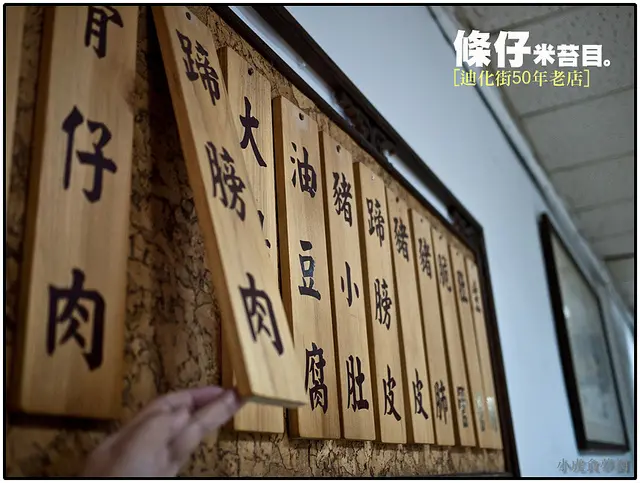 條仔米苔目。
[迪化街50年老店]
骨仔肉
蹄膀肉
大
油豆腐
豬小肚
蹄膀皮
豬皮
豬肺